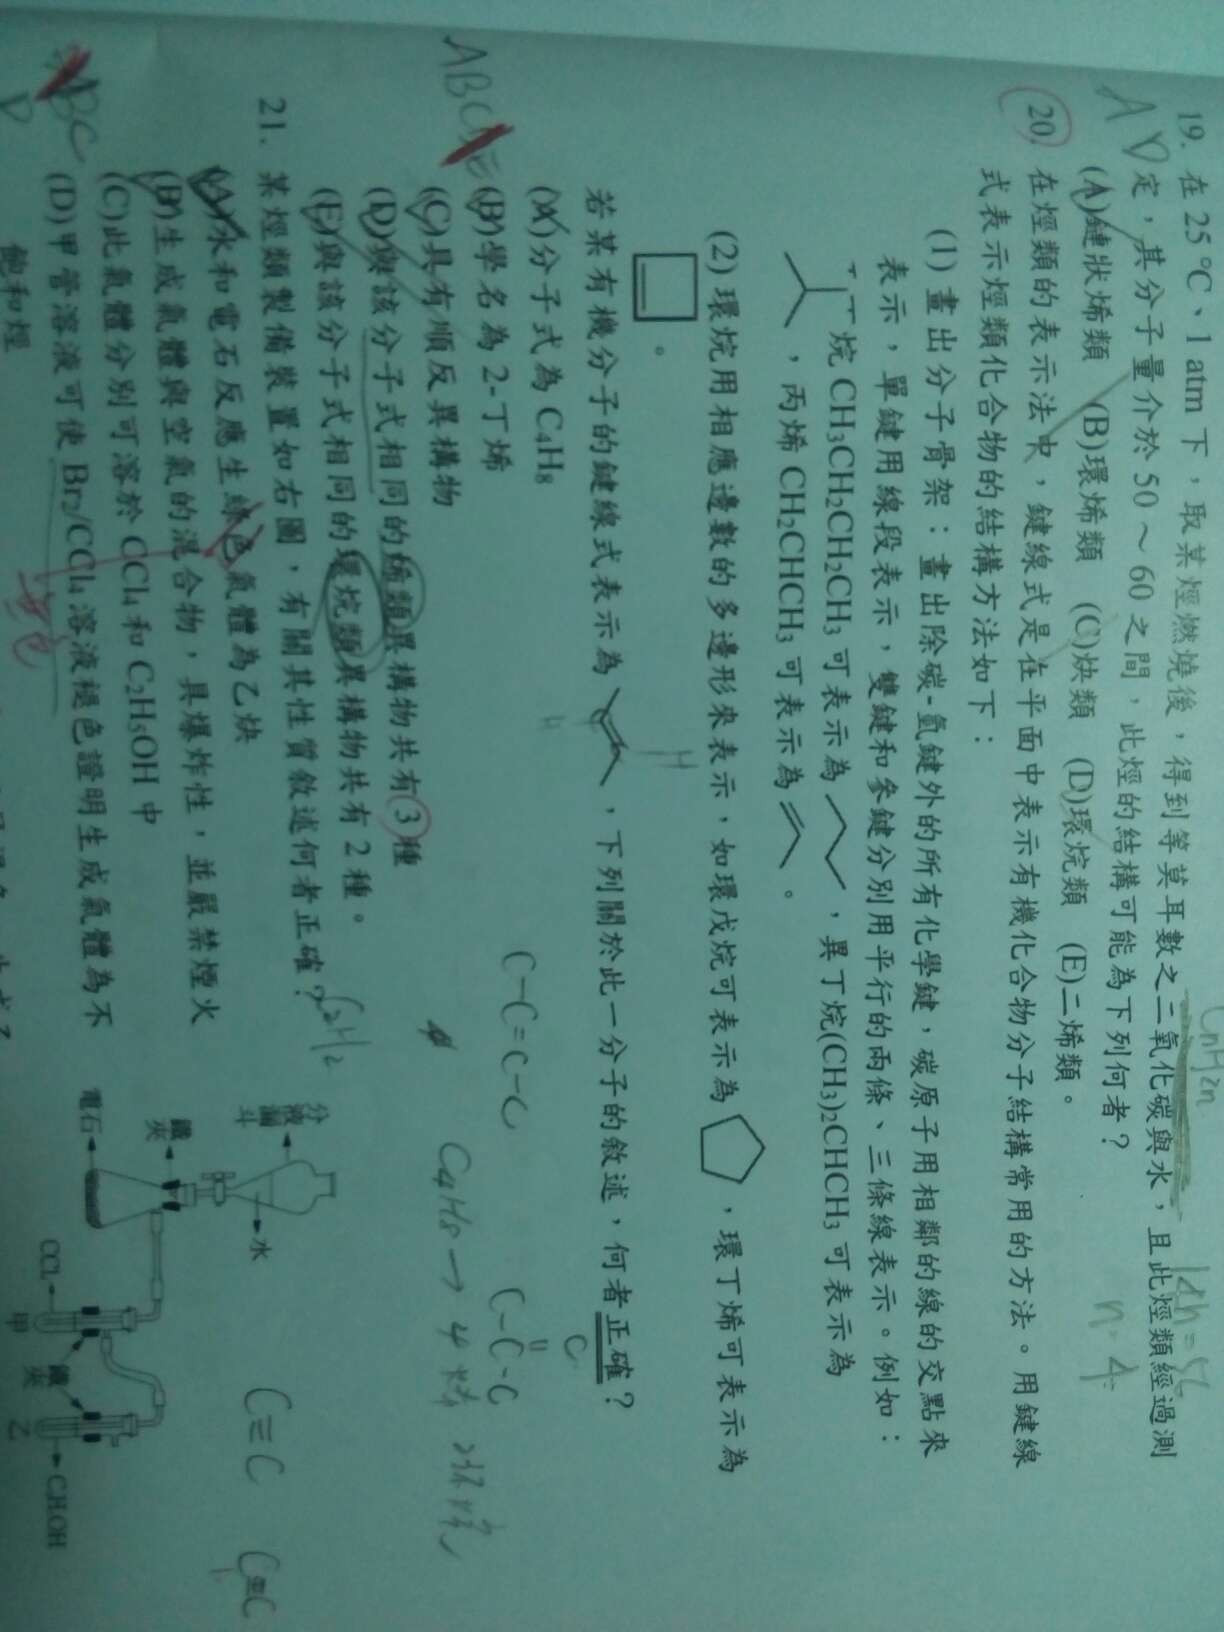 19. 在 25 ℃、1 atm 下，取某烴燃燒後，得到等莫耳數之二氧化碳與水，且此烴類經過測
定，其分子量介於 50～60 之間，此烴的結構可能為下列何者？
(A)鏈狀烯類 (B)環烯類 (C)炔類 (D)環烷類 (E)二烯類。
A D
CnH2n
14n=56
n=4
20. 在烴類的表示法中，鍵線式是在平面中表示有機化合物分子結構常用的方法。用鍵線
式表示烴類化合物的結構方法如下：
(1) 畫出分子骨架：畫出除碳-氫鍵外的所有化學鍵，碳原子用相鄰的線的交點來
表示，單鍵用線段表示，雙鍵和參鍵分別用平行的兩條、三條線表示。例如：
丁烷 CH3CH2CH2CH3 可表示為 ，異丁烷(CH3)2CHCH3 可表示為
，丙烯 CH2CHCH3 可表示為 。
(2) 環烷用相應邊數的多邊形來表示，如環戊烷可表示為 ，環丁烯可表示為
。
若某有機分子的鍵線式表示為 ，下列關於此一分子的敘述，何者正確？
H
H
(A)分子式為 C4H8
(B)學名為 2-丁烯
(C)具有順反異構物
(D)與該分子式相同的烯類異構物共有 3 種
(E)與該分子式相同的環烷類異構物共有 2 種。
ABC E
C-C=C-C
C
C-C-C
4
C4H8→ 4烯 2環烷
21. 某烴類製備裝置如右圖，有關其性質敘述何者正確？
C2H2
(A)水和電石反應生綠色氣體為乙炔
(B)生成氣體與空氣的混合物，具爆炸性，並嚴禁煙火
(C)此氣體分別可溶於 CCl4 和 C2H5OH 中
(D)甲管溶液可使 Br2/CCl4 溶液褪色證明生成氣體為不
飽和烴
ABC
D
無色
分液漏斗
水
鐵夾
電石
CCl4
甲
鐵夾
乙
C2H5OH
C≡C
C≡C